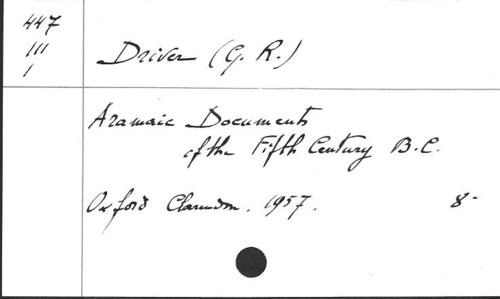 447
III
1
Driver (G. R.)
Aramaic Documents
of the Fifth Century B.C.
Oxford Clarendon. 1957. 8-